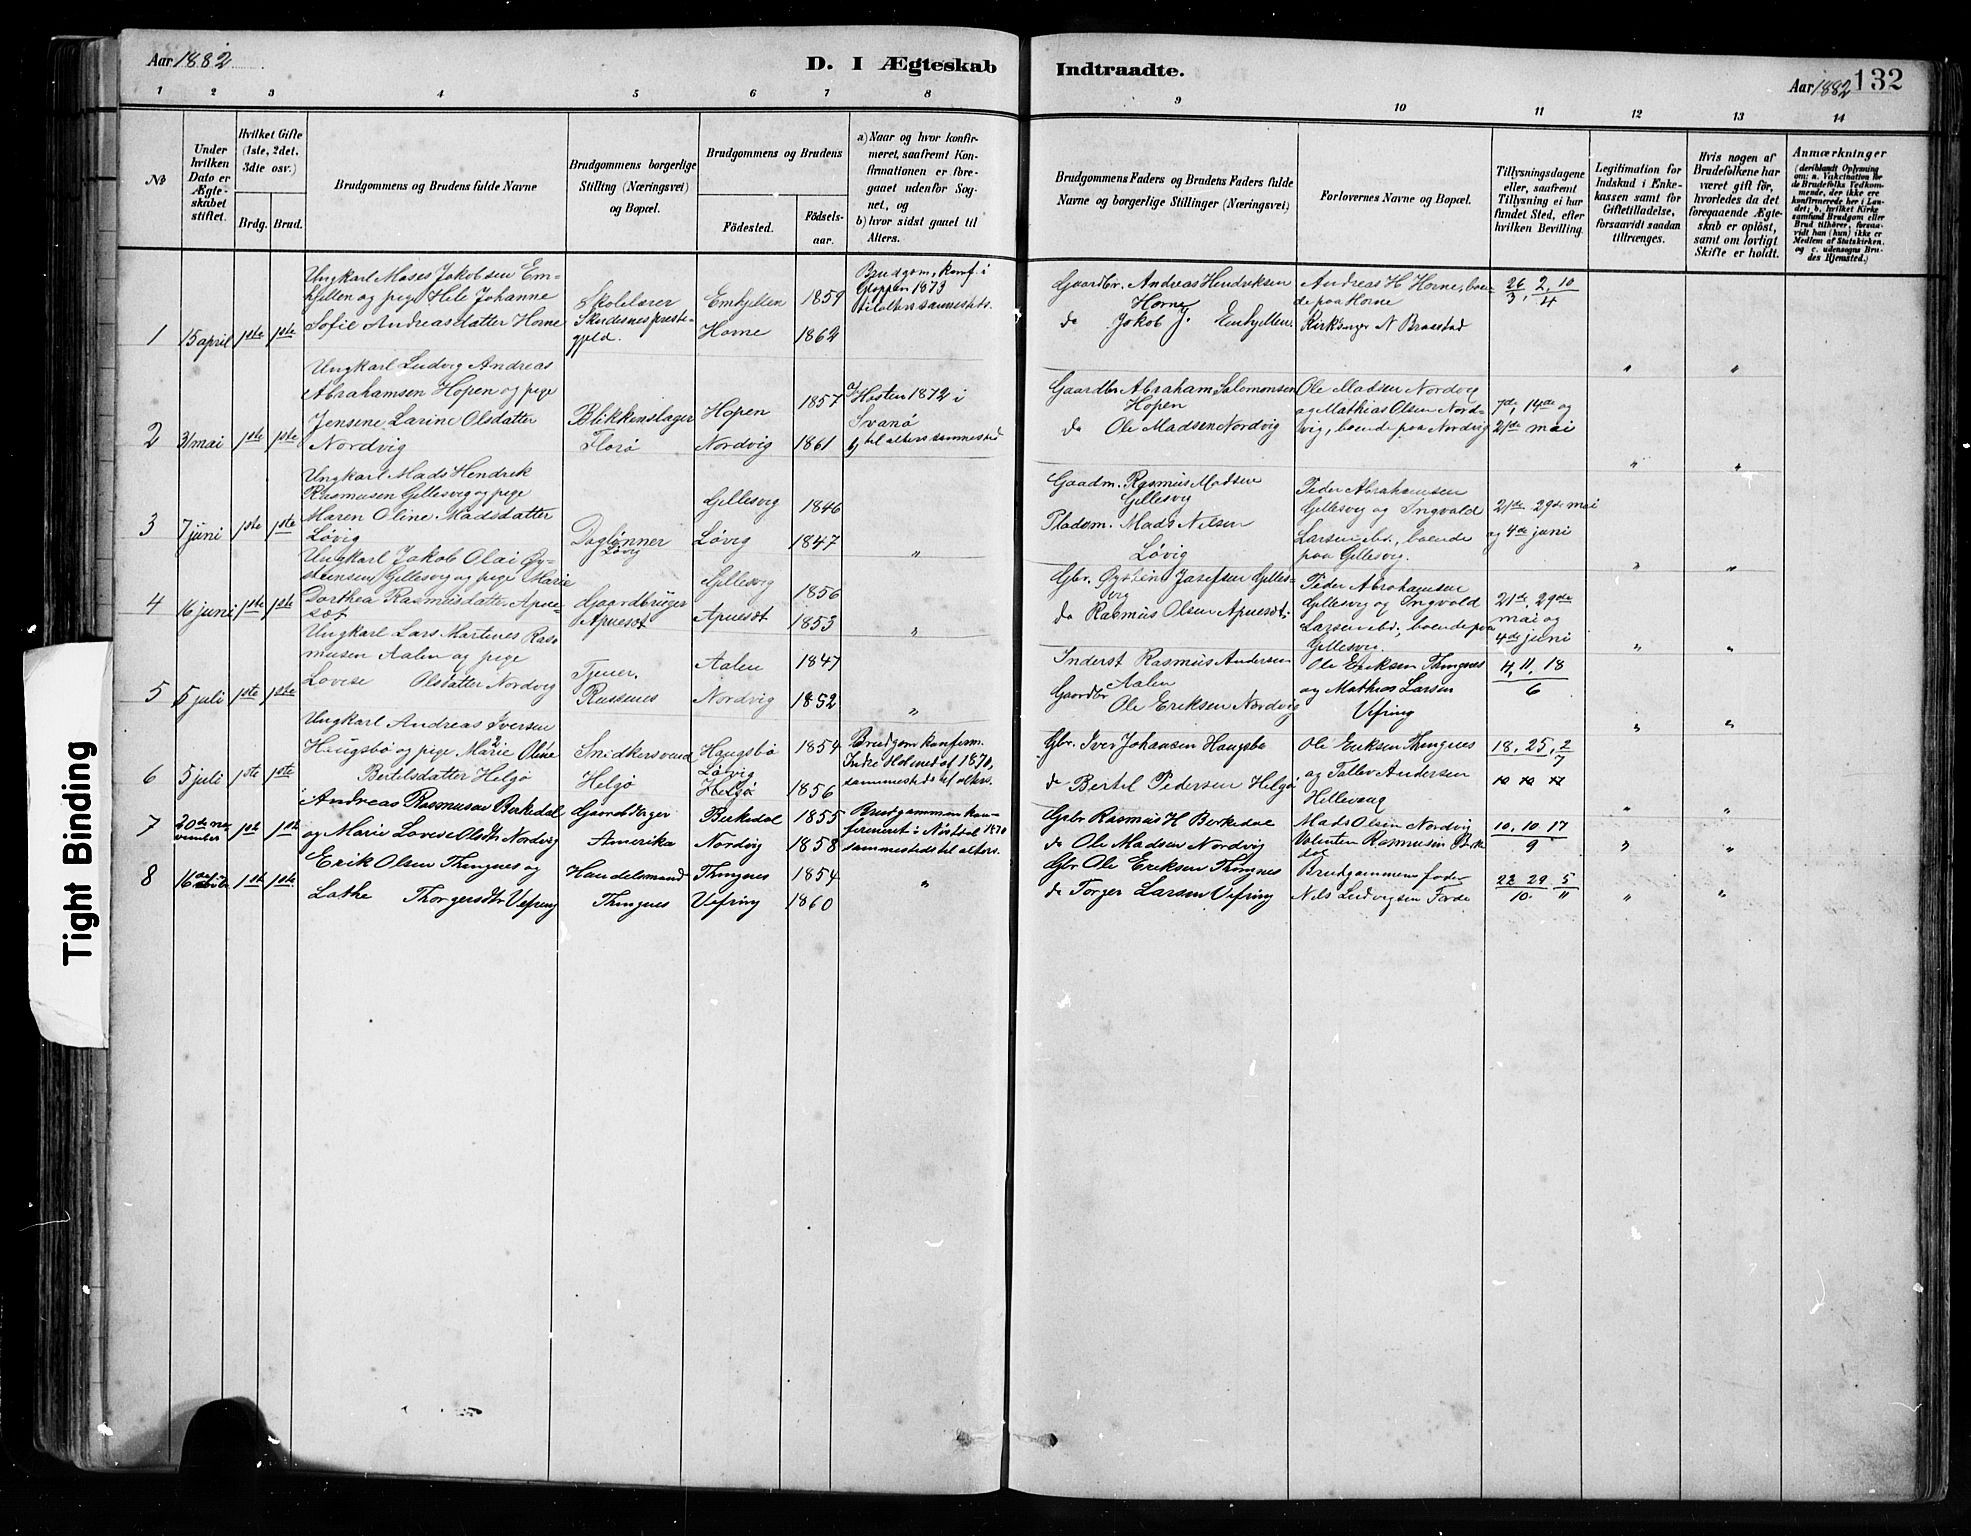 Aar 1882
D. I Ægteskab
Indtraadte.
Aar 1882 132
1 2 3 4 5 6 7 8
9 10 11 12 13 14
№
Under hvilken Dato er Ægte-skabet stiftet.
Hvilket Gifte (1ste, 2det, 3dte osv.)
Brdg. Brud.
Brudgommens og Brudens fulde Navne
Brudgommens borgerlige Stilling (Næringsvei) og Bopæl.
Brudgommens og Brudens
Födested.
Födsels-aar.
a) Naar og hvor konfir-meret, saafremt Kon-firmationen er fore-gaaet udenfor Sog-net, og
b) hvor sidst gaaet til Alters.
Brudgommens Faders og Brudens Faders fulde Navne og borgerlige Stillinger (Næringsvei)
Forlovernes Navne og Bopæl.
Tillysningsdagene eller, saafremt Tillysning ei har fundet Sted, efter hvilken Bevilling.
Legitimation for Indskud i Enke-kassen samt for Giftetilladelse, forsaavidt saadan tiltrænges.
Hvis nogen af Brudefolkene har været gift før, hvorledes da det foregaaende Ægte-skab er oplöst, samt om lovligt Skifte er holdt.
Anmærkninger
(deriblandt Oplysning om: a. Vakcination for de Brudefolks Vedkom-mende, der ikke ere konfirmerede her i Lan-det; b. hvilket Kirke-samfund Brudgom eller Brud tilhörer, forsaa-vidt han (hun) ikke er Medlem af Statskirken, og c. udensogns Bru-des Hjemsted.)
1 15 april 1ste 1ste
Ungkarl Moses Jakobsen Em-
hjellen og pige Hele Johanne
Sofie Andreasdatter Horne
Skolelærer
Skudesnes preste-
gjeld.
Emhjellen 1859
Horne 1862
Brudgom. konf. i
Gloppen 1873
til alters sammesteds.
Gaardbr. Andreas Hendriksen
Horne
do Jakob J. Emhjellen.
Andreas H Horne, boen-
de paa Horne
Kirksanger N Braastad
26/3, 2, 10/4
" "
2 31 mai 1ste 1ste
Ungkarl Ludvig Andreas
Abrahamsen Hopen og pige
Jensene Larine Olsdatter
Nordvig
Blikkenslager
Florø
Hopen 1857
Nordvig 1861
a) Hosten 1872 i
Svanø
b) til alters sammested
Gaardbr Abraham Salomonsen
Hopen
do Ole Madsen Nordvig
Ole Madsen Nordvig
og Mathias Olsen Nord-
vig, boende paa Nordvig
7de, 14de og
21de mai
" "
3 7 juni 1ste 1ste
Ungkarl Mads Hendrik
Rasmusen Gillesvig og pige
Maren Oline Madsdatter
Løvig
Daglønner
Løvig
Gillesvig 1846
Løvig 1847
"
Gaadm. Rasmus Madsen
Gillesvig
Pladsm. Mads Nilsen
Løvig
Peder Abrahamsen
Gillesvig og Ingvald
Larsen ibd., boende
paa Gillesvig.
21de, 29de mai
og 4de juni
" "
4 16 juni 1ste 1ste
Ungkarl Jakob Olai Øy-
steensen Gillesvig og pige Marie
Dorthea Rasmusdatter Apne-
sæt
Gaardbruger
Apnesæt
Gillesvig 1856
Apnesæt 1853
"
Gbr. Øystein Josefsen Gilles-
vig
do Rasmus Olsen Apnesæt.
Peder Abrahamsen
Gillesvig og Ingvald
Larsen ibd., boende paa
Gillesvig.
21de, 29de
mai og
4de juni
" "
5 5 juli 1ste 1ste
Ungkarl Lars Martines Ras-
musen Aalen og pige
Lovise Olsdatter Nordvig
Tjener.
Russenes
Aalen 1847
Nordvig 1852
"
Inderst Rasmus Andersen
Aalen
Gaardbr Ole Eriksen Nordvig
Ole Eriksen Thingnes
og Mathias Larsen
Vefring
4, 11, 18/6
" "
6 5 juli 1ste 1ste
Ungkarl Andreas Iversen
Haugsbø og pige Marie Oline
Bertelsdatter Helgø
Snidkersvend
Helgø
Haugsbø 1854
Løvig
Helgø 1856
Brudgom konferm.
Indre Holmedal 1870,
sammesteds til alters.
Gbr. Iver Johansen Haugsbø
do Bertel Pedersen Helgø
Ole Eriksen Thingnes
og Tollev Andersen
Hellevang
18, 25, 2/7
" "
7 20de no-
vember 1ste 1ste
Andreas Rasmusen Birkedal
og Marie Lovise Olsdtr Nordvig
Gaardbruger
Amerika
Birkedal 1855
Nordvig 1858
Brudgommen kon-
fermeret i Nøstdal 1870
sammesteds til alters.
Gbr Rasmus H Birkedal
do Ole Madsen Nordvig
Mads Olsen Nordvig
Valentin Rasmusen Birke
dal
10, 10, 17/9
" "
8 16 1ste 1ste
Erik Olsen Thingnes og
Lathe Thorgersdtr Vefring
Handelsmand
Thingnes
Thingnes 1854
Vefring 1860
"
Gbr Ole Eriksen Thingnes
do Torger Larsen Vefring
Brudgommens fader
Nils Ludvigsen Førde
22 29/10. 5/11
" "
Tight Binding